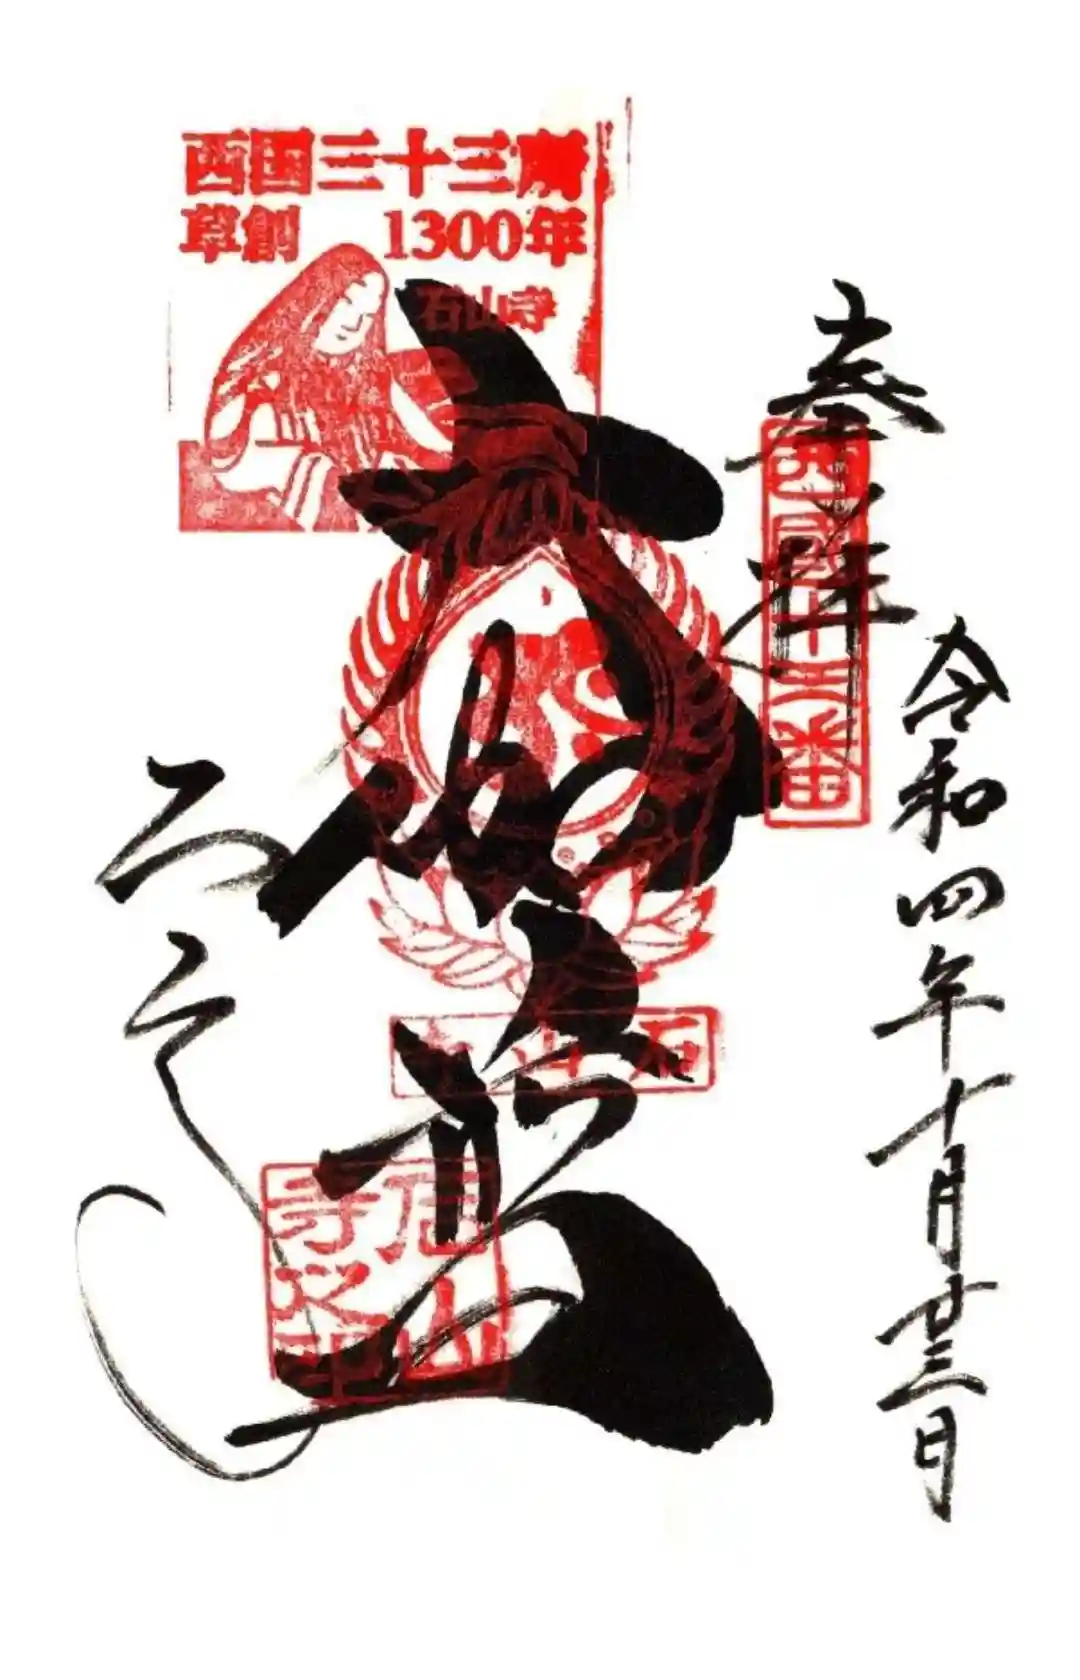 西国三十三所
草創 1300年
石山寺
奉拝
西国十三番
令和四年十月廿三日
大伽藍
石山寺
石山寺之印